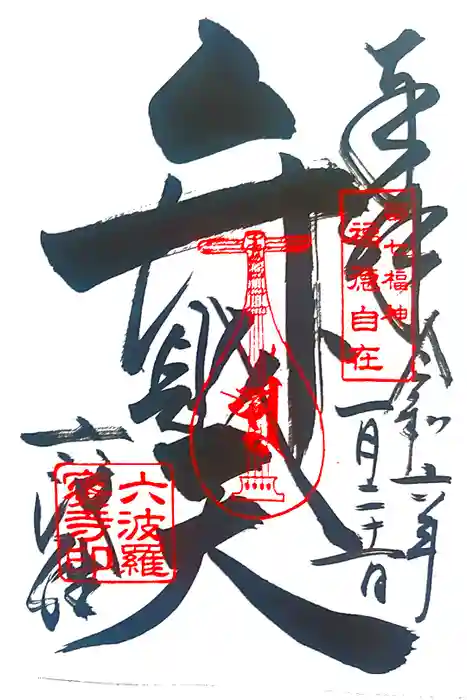 奉拝
令和六年
一月二十六日
都七福神
福徳自在
弁財天
六波羅
蜜寺印
六波羅蜜寺